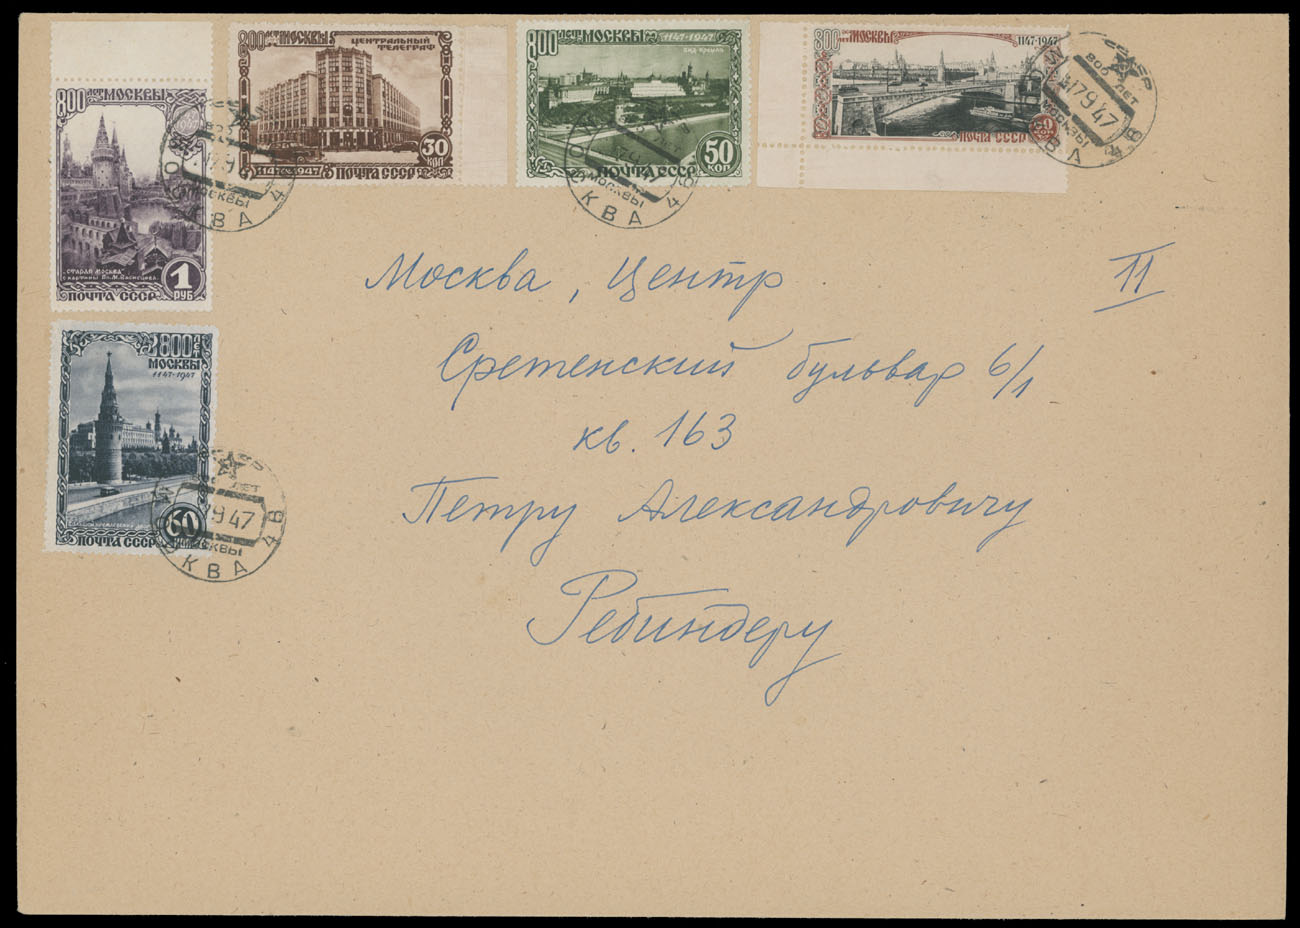 800 ЛЕТ МОСКВЫ
„СТАРАЯ МОСКВА"
С КАРТИНЫ Ап. М. ВАСНЕЦОВА
1 РУБ
ПОЧТА СССР
800 ЛЕТ МОСКВЫ
ЦЕНТРАЛЬНЫЙ
ТЕЛЕГРАФ
30 КОП
1147-1947 ПОЧТА СССР
800 ЛЕТ МОСКВЫ 1147-1947
ВИД КРЕМЛЯ
50 КОП
ПОЧТА СССР
800 ЛЕТ МОСКВЫ 1147-1947
ПОЧТА СССР
800 ЛЕТ
МОСКВЫ
1147-1947
60
ПОЧТА СССР
800 ЛЕТ
7 9 47
МОСКВЫ
МОСКВА 48
Москва, Центр 11
Сретенский бульвар 6/1
кв. 163
Петру Александровичу
Ребиндеру